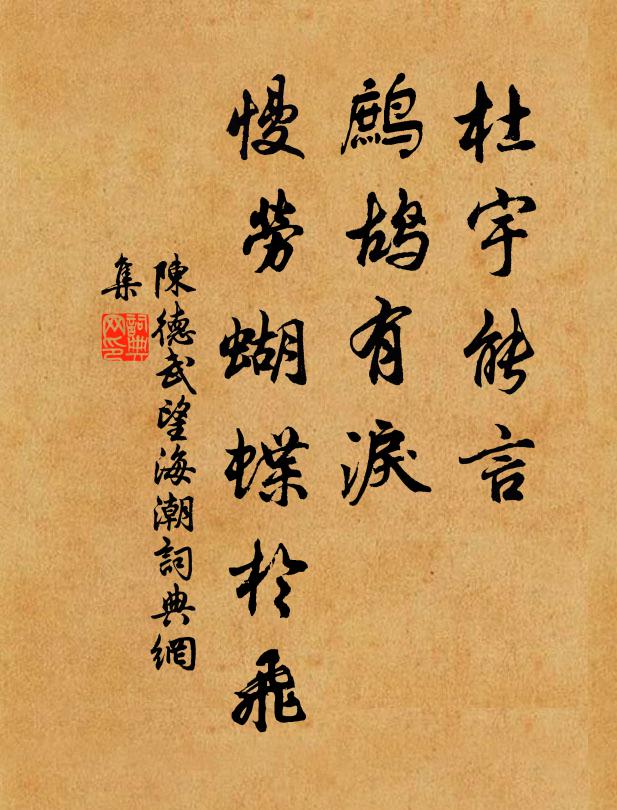 杜宇能言
鹧鸪有淚
慢勞蝴蝶於飛
陳德武望海潮詞典網
集
詞典網印